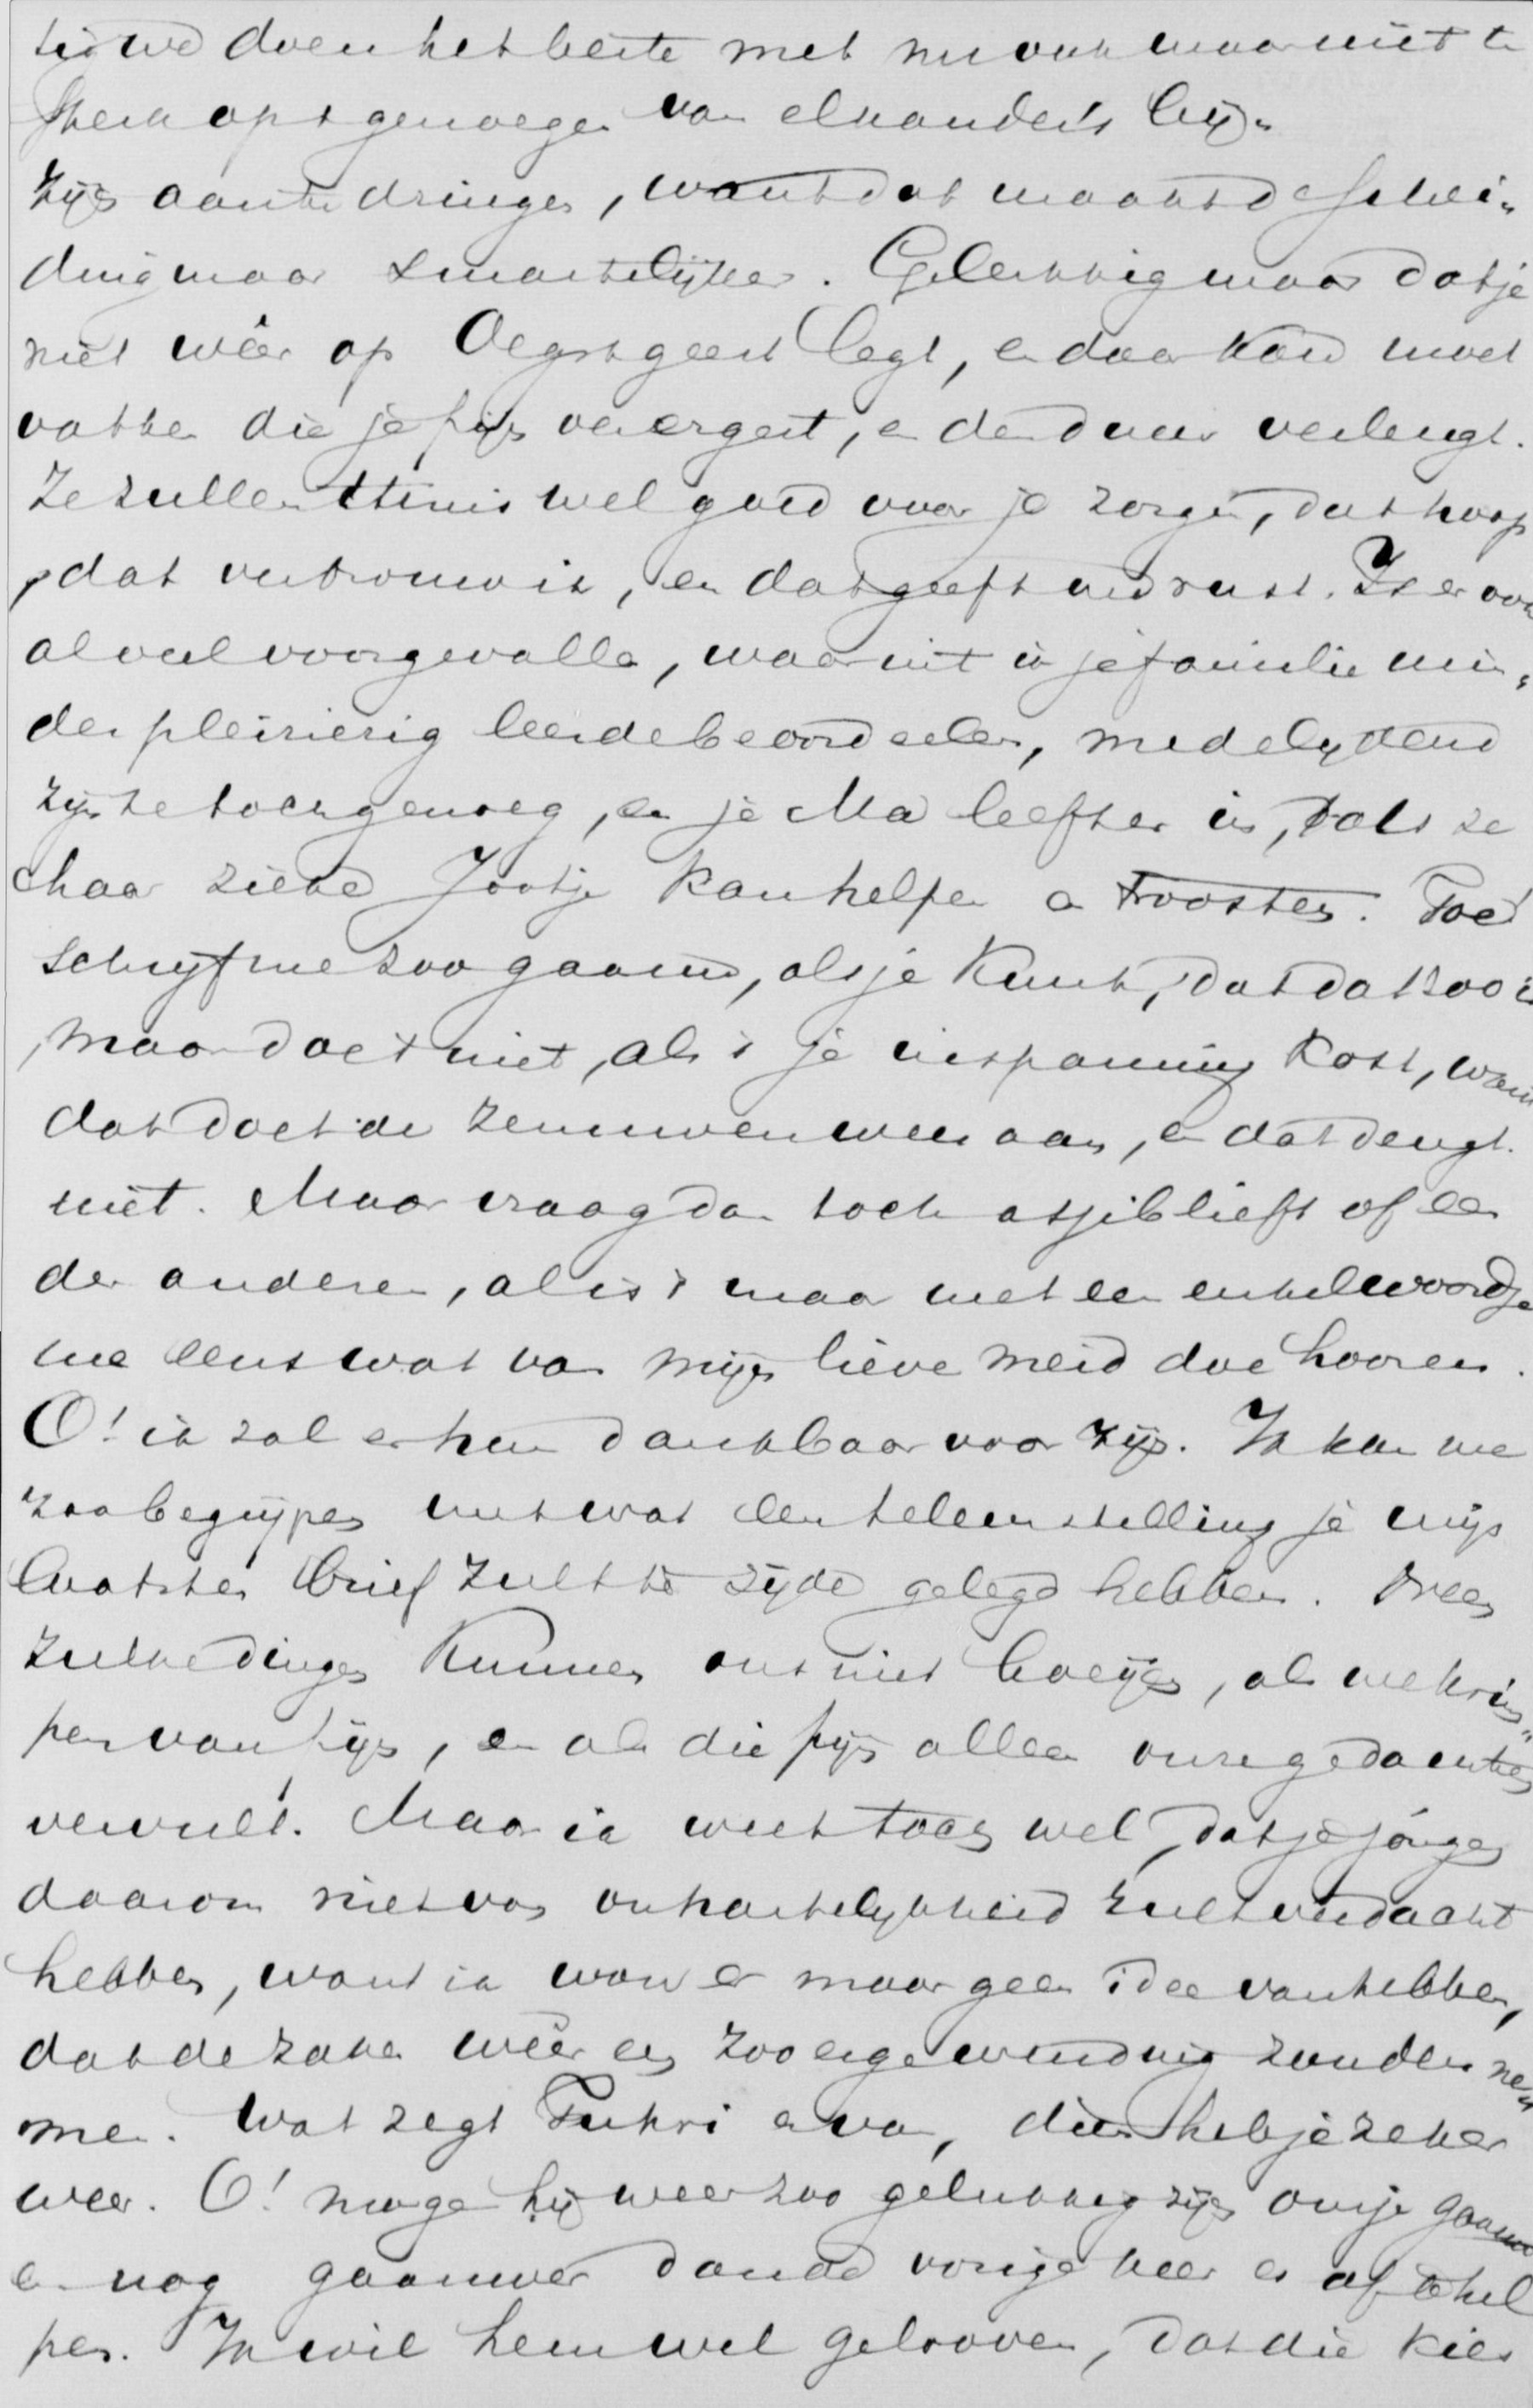 we doen het beste met nu ook maar niet te
sterk op 't genoegen van elkanders bij-
zijn aan te dringen, want dat maakt de schei-
ding maar smartelijker. Gelukkig maar dat je
niet wêer op Oegstgeest legt, en daar kou moet
vatten die je pijn verergert, en den duur verlengt.
Ze zullen thuis wel goed voor je zorgen, dat hoop
, dat vertrouw ik, en dat geeft me rust. Is er ook
al veel voorgevallen, waaruit ik je familie min-
der pleizierig leerde beoordeelen, medelijdend
zijn ze toch genoeg, en je Ma leeft er in, als ze
haar zieke Jootje kan helpen en troosten. Toe!
schrijf me zoo gaauw, als je kunt, dat dat zoo is
, maar doe 't niet, als 't je inspanning kost, want
dat doet de zenuwen weer aan, en dat deugt
niet. Maar vraag dan toch asjeblieft of een
der anderen, al is 't maar met een enkel woordje
me eens wat van mijn lieve meid doe hooren.
O! ik zal er hen dankbaar voor zijn. Ik kan me
zoo begrijpen met wat een teleurstelling je mijn
laatsten brief zult ter zijde gelegd hebben. Neen
zulke dingen kunnen ons niet boeijen, als we krim-
pen van pijn, en als die pijn alleen onze gedachten
vervult. Maar ik weet toch wel, dat je je jongen
daarom niet van onhartelijkheid zult verdacht
hebben, want ik wou er maar geen idee van hebben,
dat de zaken wêer en zoo erge wending zouden ne-
men. Wat zegt Fukri er van, dien heb je zeker
weer. O! moge hij weer zoo gelukkig zijn om je gaauw
en nog gaauwer dan de vorige keer er af te hel
pen. Ik wil hem wel gelooven, dat die kies